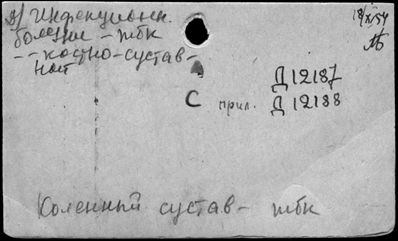 а) Инфекционн.
болезни – тбк
-- костно-сустав-
ной
18/X/54
Д12187
С прил. Д12188
Коленный сустав – тбк